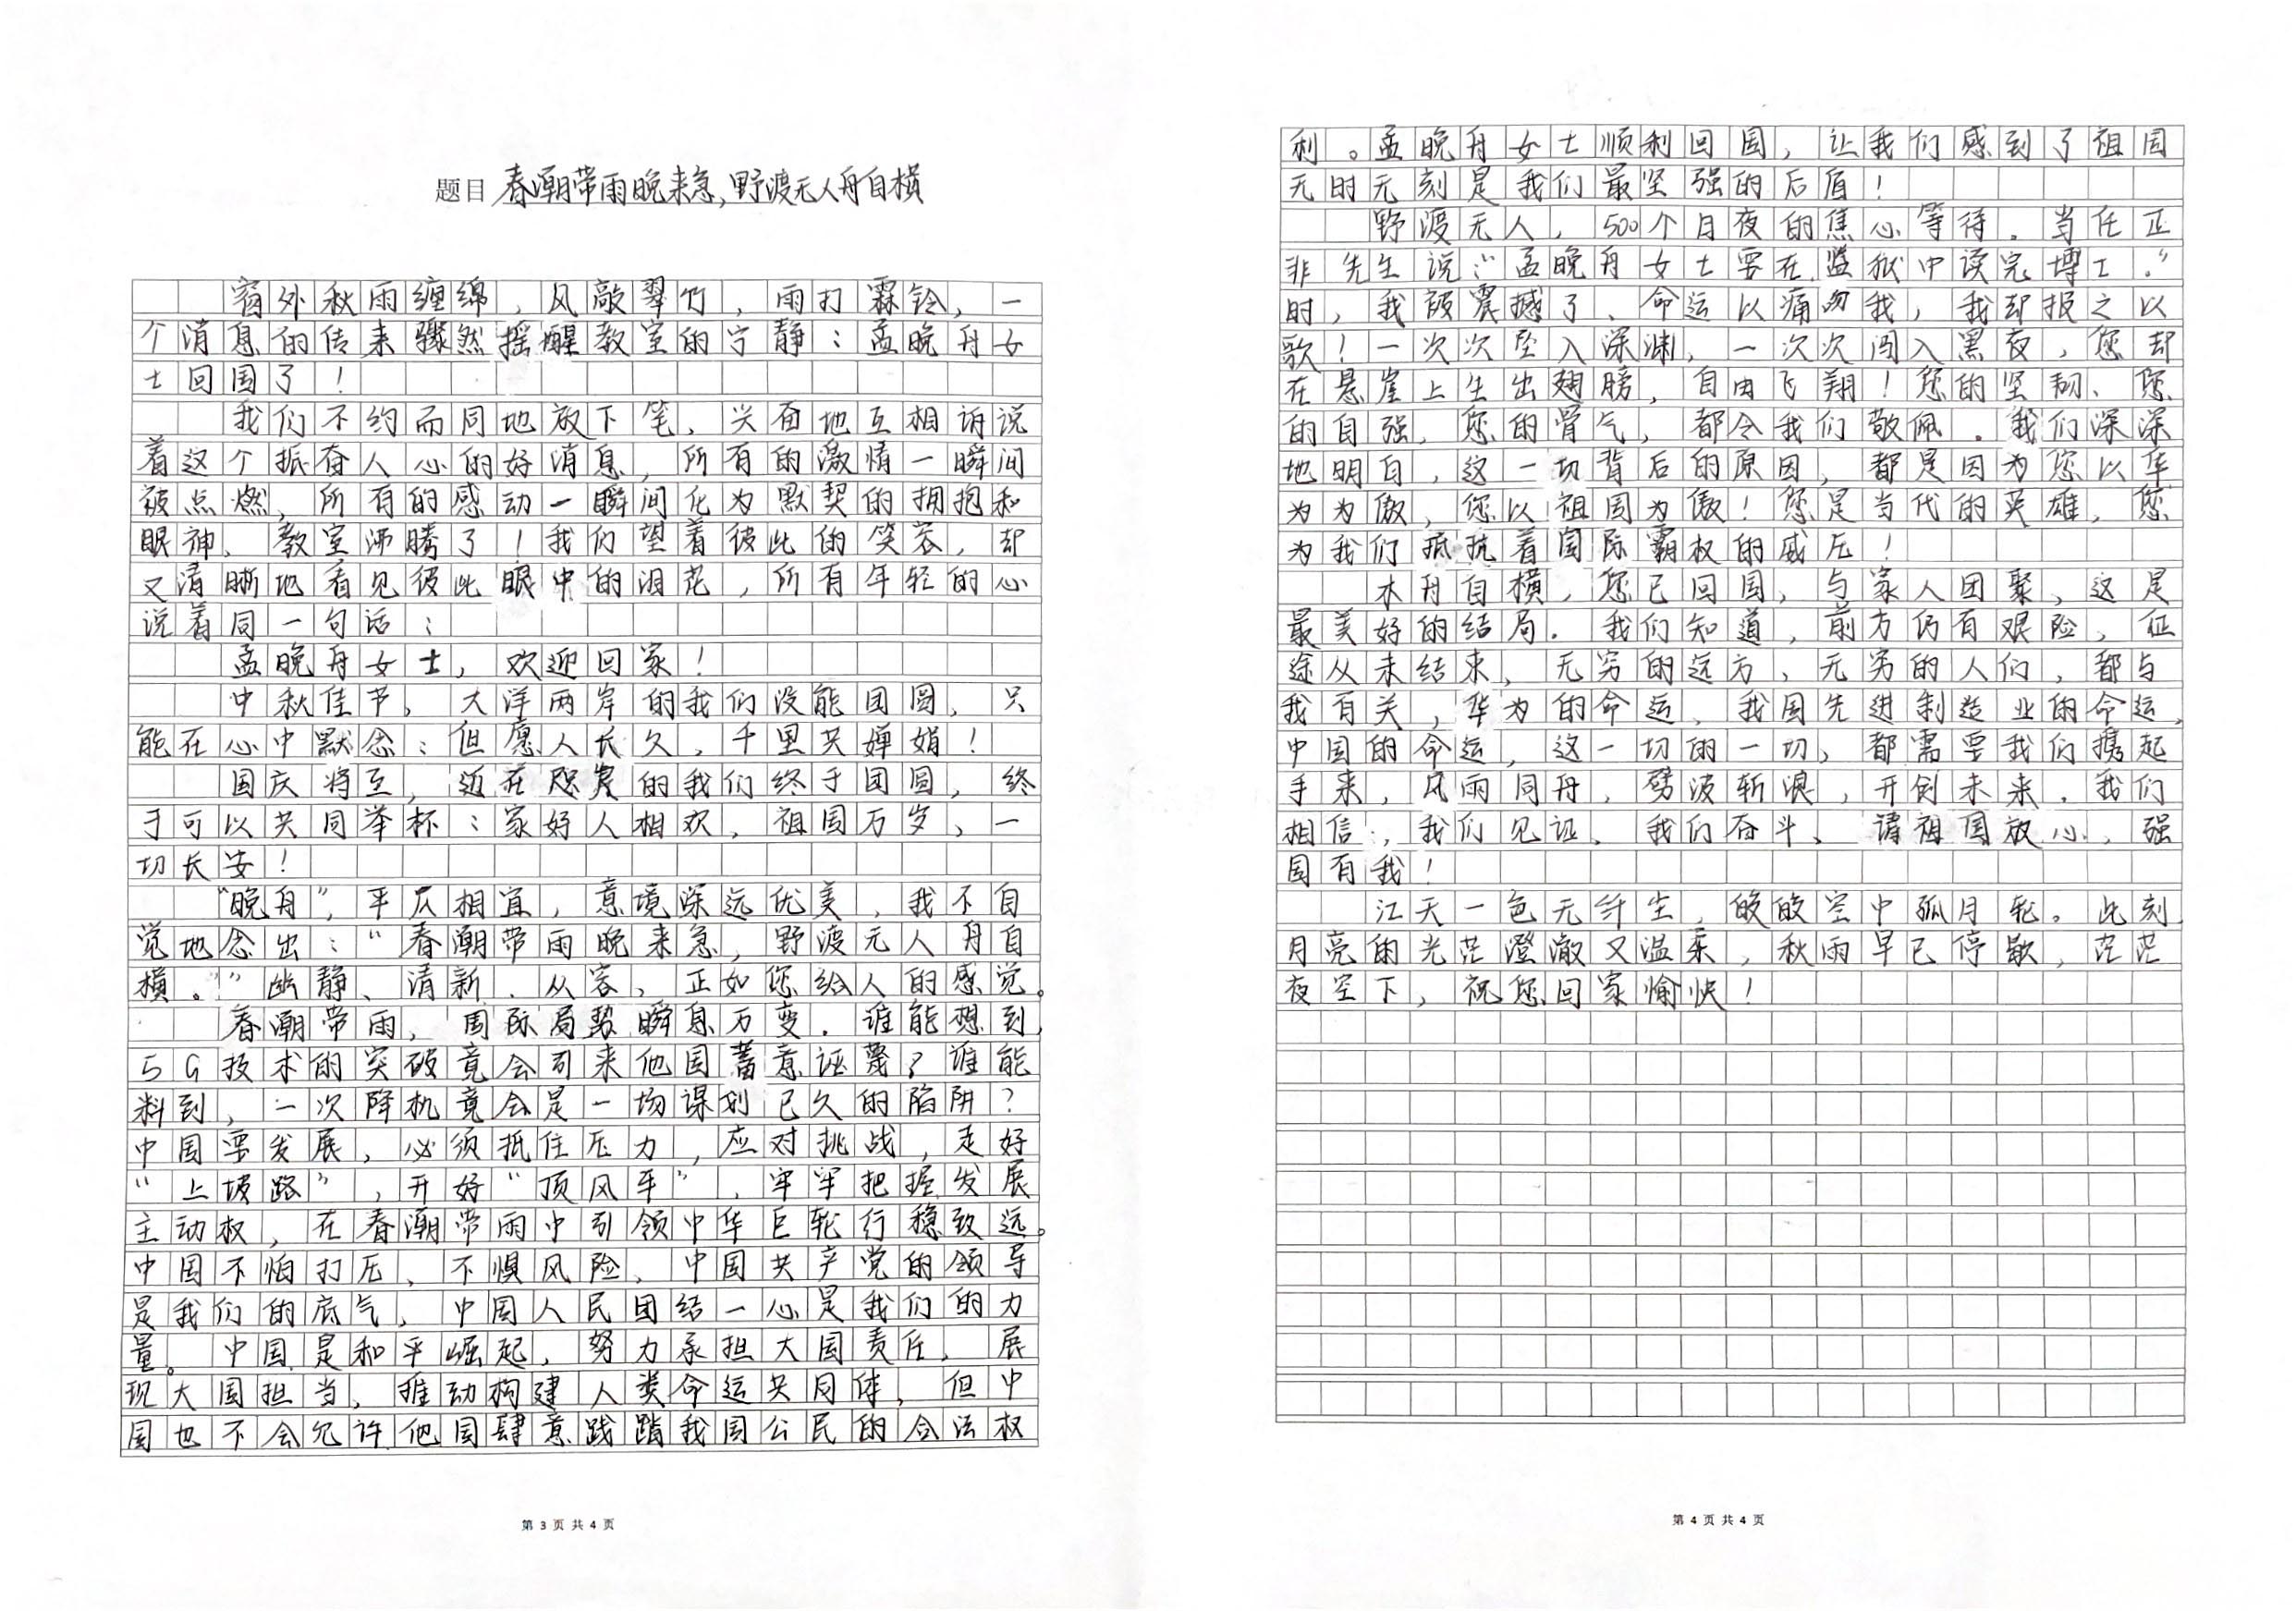 题目 春潮带雨晚来急,野渡无人舟自横
窗外秋雨缠绵,风敲翠竹,雨打霖铃,一
个消息的传来骤然摇醒教室的宁静:孟晚舟女
士回国了!
我们不约而同地放下笔、兴奋地互相诉说
着这个振奋人心的好消息,所有的激情一瞬间
被点燃,所有的感动一瞬间化为默契的拥抱和
眼神、教室沸腾了!我们望着彼此的笑容,却
又清晰地看见彼此眼中的泪花,所有年轻的心
说着同一句话:
孟晚舟女士,欢迎回家!
中秋佳节,大洋两岸的我们没能团圆,只
能在心中默念:但愿人长久,千里共婵娟!
国庆将至,近在咫尺的我们终于团圆,终
于可以共同举杯:家好人相欢,祖国万岁、一
切长安!
“晚舟”,平仄相宜,意境深远优美,我不自
觉地念出:“春潮带雨晚来急,野渡无人舟自
横。”幽静、清新、从容,正如您给人的感觉。
春潮带雨,国际局势瞬息万变。谁能想到,
5G技术的突破竟会引来他国蓄意诬蔑?谁能
料到,一次降机竟会是一场谋划已久的陷阱?
中国要发展,必须抵住压力,应对挑战,走好
“上坡路”,开好“顶风车”,牢牢把握发展
主动权,在春潮带雨中引领中华巨轮行稳致远。
中国不怕打压、不惧风险、中国共产党的领导
是我们的底气,中国人民团结一心是我们的力
量。中国是和平崛起,努力承担大国责任,展
现大国担当、推动构建人类命运共同体,但中
国也不会允许他国肆意践踏我国公民的合法权
第 3 页 共 4 页
利。孟晚舟女士顺利回国,让我们感到了祖国
无时无刻是我们最坚强的后盾!
野渡无人,500个日夜的焦心等待。当任正
非先生说:“孟晚舟女士要在监狱中读完博士。”
时,我被震撼了、命运以痛吻我,我却报之以
歌!一次次坠入深渊,一次次闯入黑夜,您却
在悬崖上生出翅膀,自由飞翔!您的坚韧、您
的自强、您的骨气,都令我们敬佩。我们深深
地明白,这一切背后的原因,都是因为您以华
为为傲,您以祖国为傲!您是当代的英雄,您
为我们抵抗着国际霸权的威压!
木舟自横,您已回国,与家人团聚,这是
最美好的结局。我们知道,前方仍有艰险,征
途从未结束,无穷的远方,无穷的人们,都与
我有关,华为的命运、我国先进制造业的命运,
中国的命运,这一切的一切,都需要我们携起
手来,风雨同舟,劈波斩浪,开创未来。我们
相信,我们见证、我们奋斗、请祖国放心,强
国有我!
江天一色无纤尘,皎皎空中孤月轮。此刻,
月亮的光芒澄澈又温柔,秋雨早已停歇,茫茫
夜空下,祝您回家愉快!
第 4 页 共 4 页